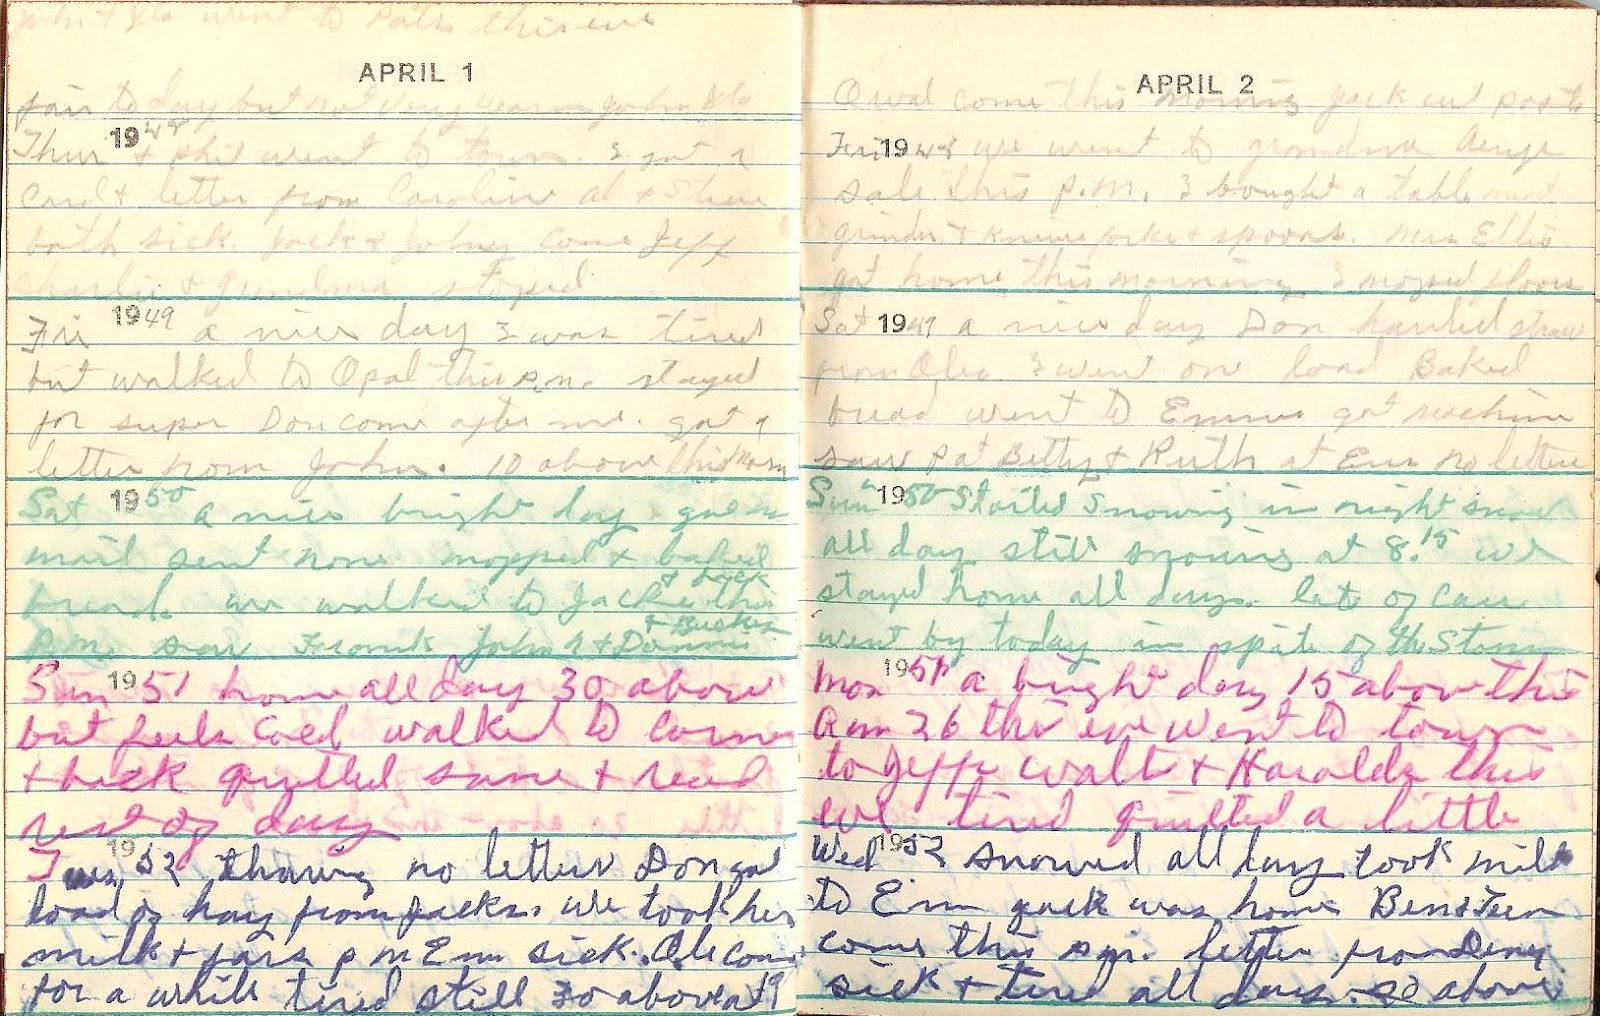 John & Ila went to Pats this eve
APRIL 1
fair to day but not very warm John Ila
Thur 1948 & Phil went to town. I got a
card & letter from Caroline al & Steve
both sick. Jack & Johny come Jeff
Charlie & grandma stayed
Fri 1949 a nice day I was tired
but walked to Opal this p.m. stayed
for super Don come after me. got a
letter from John. 10 above this morn
Sat 1950 a nice bright day got no
mail sent none mopped & baked
bread. we walked to Jacks & back this
P.M. saw Frank John R & Donnie & Buster
Sun 1951 home all day 30 above
but feels cold walked to corner
& back quilted some & read
rest of day
Tues 1952 thawing no letter Don got
load of hay from Jacks. we took her
milk & jars p m Em sick. Ole come
for a while tired still 30 above at 9
APRIL 2
Orval come this morning Jack cut posts
Fri 1948 we went to grandma
sale this p.m. I bought a table meat
grinder & knives forks & spoons. Mrs Ellis
got home this morning I moped floors
Sat 1949 a nice day Don hauled straw
from Oles I went one load Baked
bread went to Emms got machine
saw Pat Betty & Ruth at Em no letter
Sun 1950 Started snowing in night snow
all day still snowing at 8.15 we
stayed home all day. lots of cars
went by today in spite of the Storm
Mon 1951 a bright day 15 above this
am 26 this eve went to town
to Jeffs Walts & Haralds this
eve. tired quilted a little
Wed 1952 snowed all day took milk
to Em Jack was home
come this p.m. letter from
sick & tired all day. 30 above